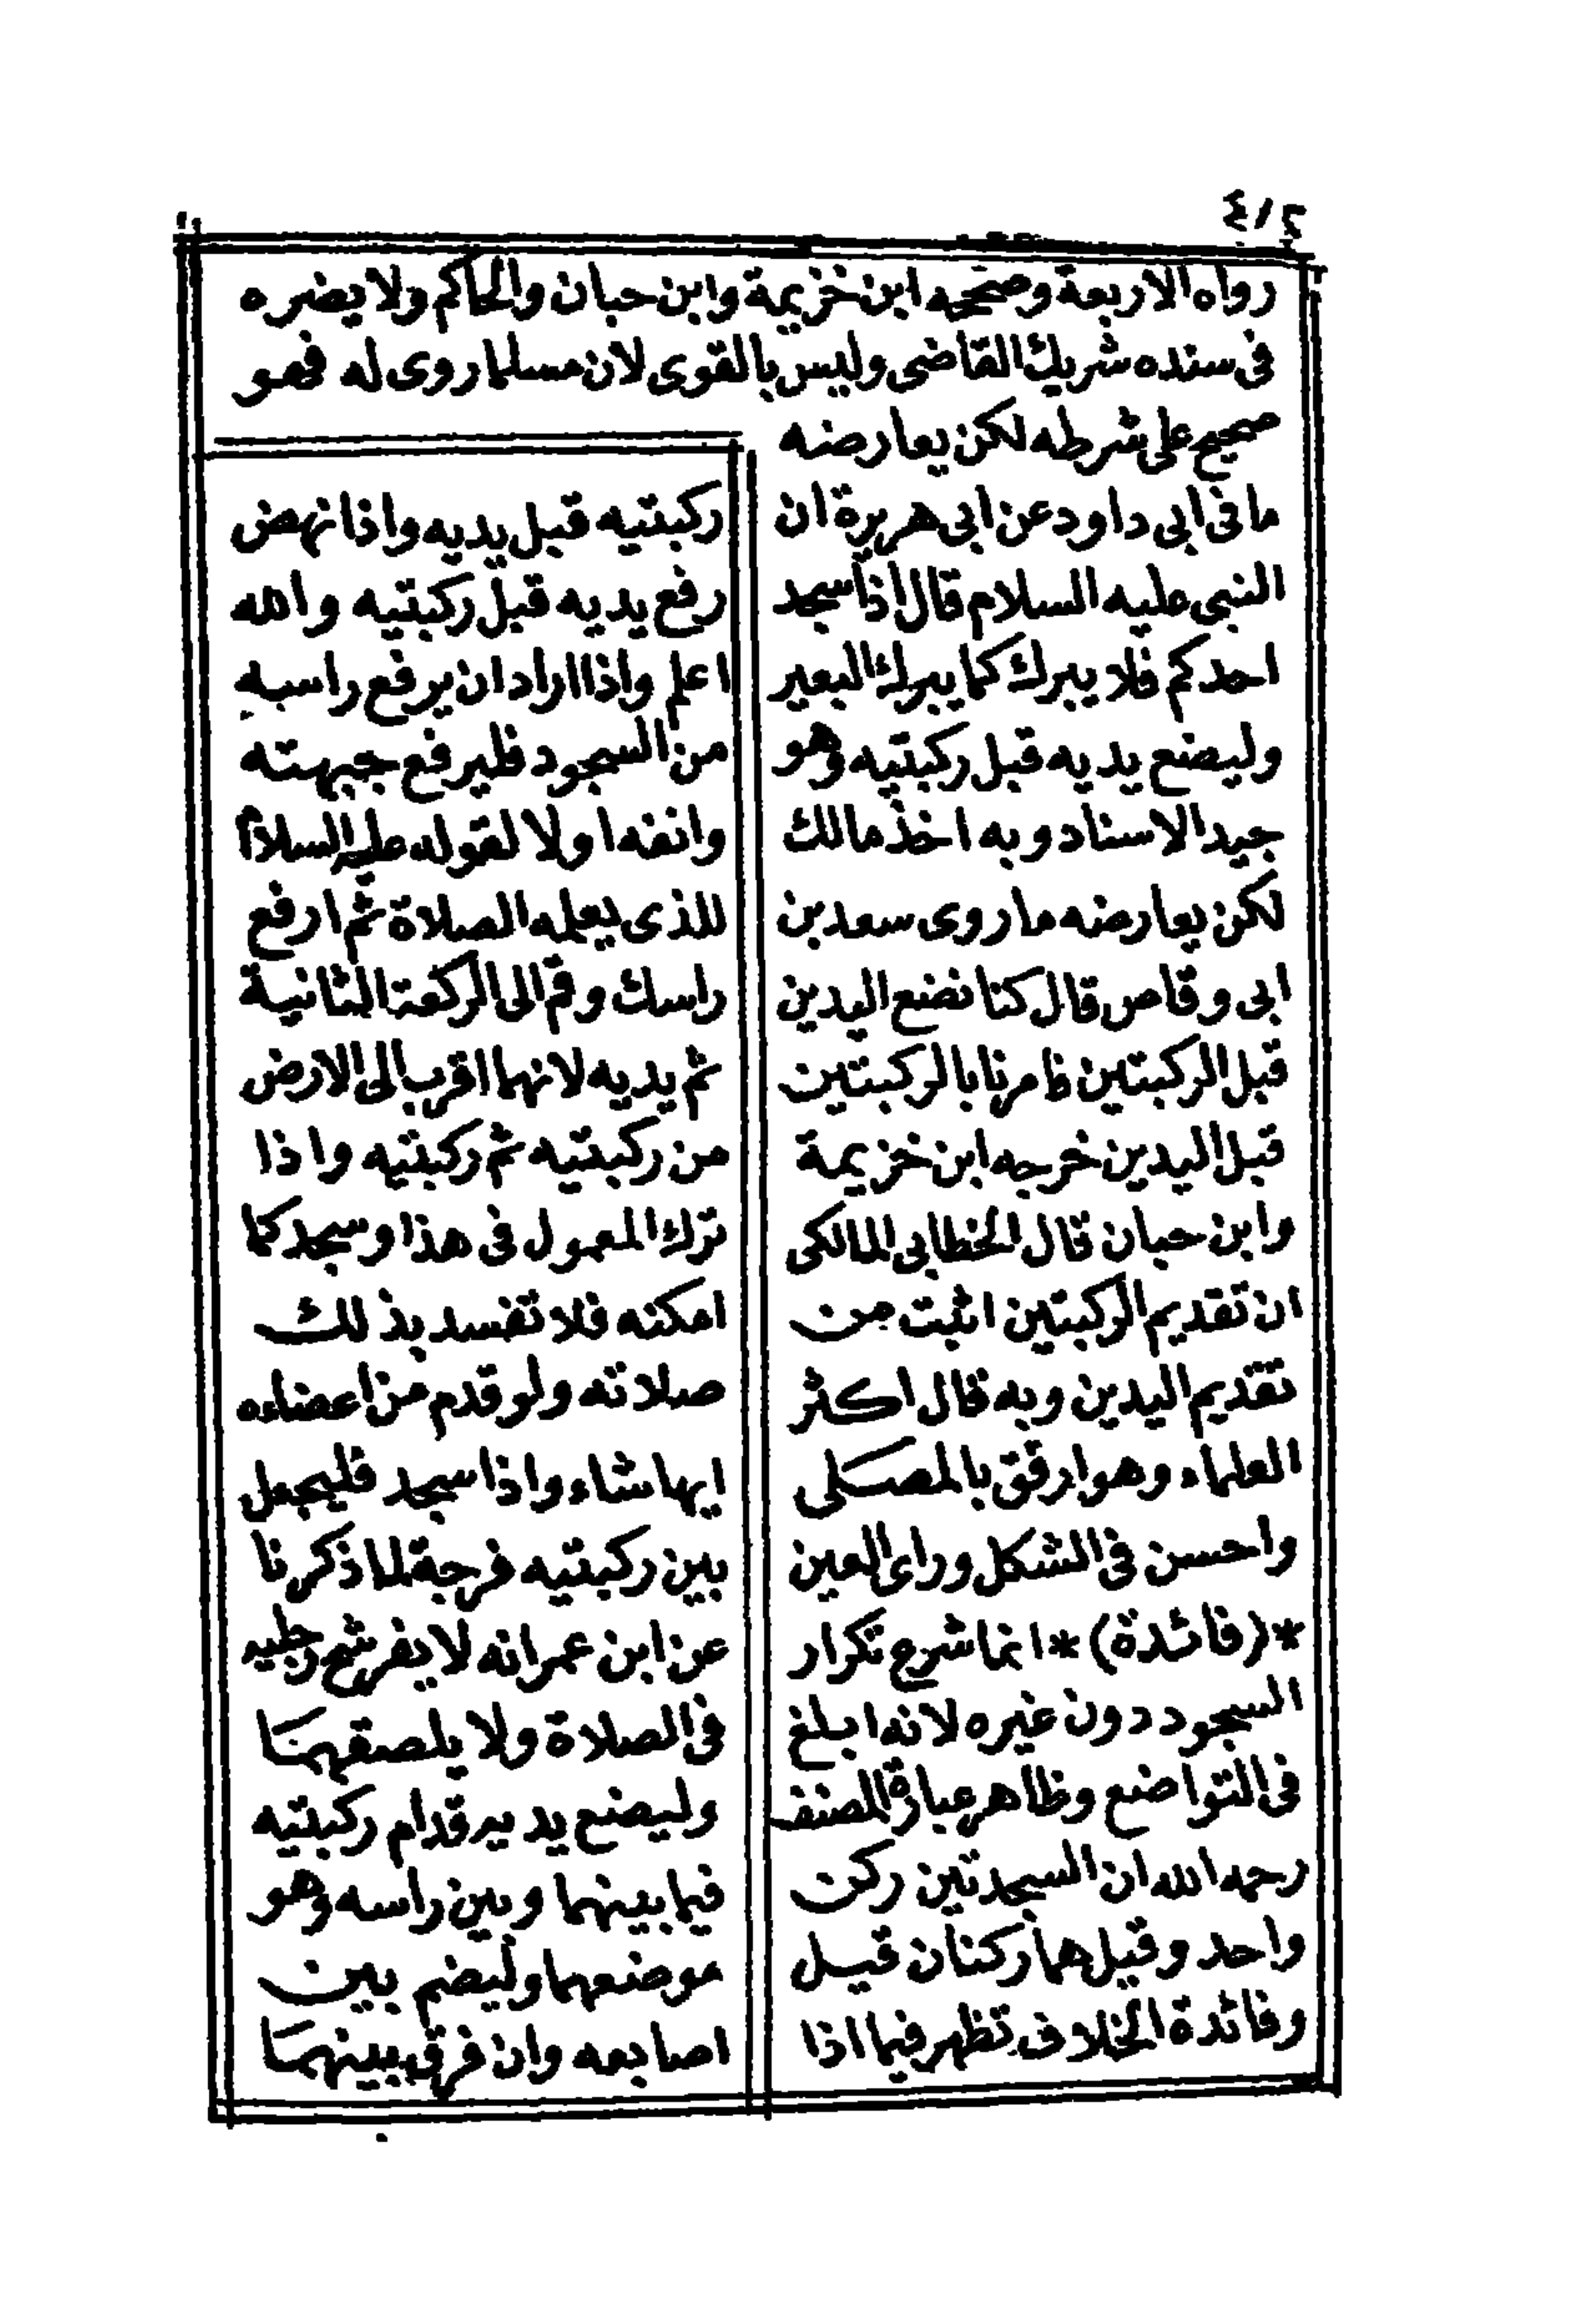 رواه الاربعة وصححه ابن خزيمة وابن حبان والحاكم ولا يضره
فى سنده شريك القاضى وليس بالقوى لان مسلما روى له فهو
صحيح على شرطه لكن يعارضه
ما فى ابى داود عن ابى هريرة ان
النبى عليه السلام قال اذا سجد
احدكم فلا يبرك كما يبرك البعير
وليضع يديه قبل ركبتيه وهو
جيد الاسناد وبه اخذ مالك
لكن يعارضه ما روى سعد بن
ابى وقاص قال كنا نضع اليدين
قبل الركبتين فامرنا بالركبتين
قبل اليدين خرجه ابن خزيمة
وابن حبان قال الخطابى المالكى
ان تقديم الركبتين اثبت من
تقديم اليدين وبه قال اكثر
العلماء وهو ارفق بالمصلى
واحسن فى الشكل وراى العين
*(فائدة)* انما شرع تكرار
السجود دون غيره لانه ابلغ
فى التواضع وظاهر عبارة المصنف
رحمه الله ان السجدتين ركن
واحد وقيل هما ركنان قيل
وفائدة الخلاف تظهر فيما اذا
ركبتيه قبل يديه واذا نهض
رفع يديه قبل ركبتيه والله
اعلم واذا اراد ان يرفع راسه
من السجود فليرفع جبهته
وانفه اولا لقوله عليه السلام
للذى يعلمه الصلاة ثم ارفع
راسك وقم الى الركعة الثانية
ثم يديه لانهما اقرب الى الارض
من ركبتيه ثم ركبتيه واذا
ترك المعمول فى هذا وسجد كما
امكنه فلا تفسد بذلك
صلاته ولو قدم من اعضاءه
ايها شاء واذا سجد فليجعل
بين ركبتيه فرجة لما ذكرنا
عن ابن عمر انه لا يفرشح رجليه
فى الصلاة ولا يلصقهما
وليضع يديه قدام ركبتيه
فيما بينهما وبين راسه وهو
موضعهما وليضم بين
اصابعه وان فرق بينهما